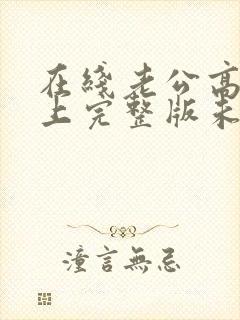 在綫老公高
上完整版未
潼言無忌